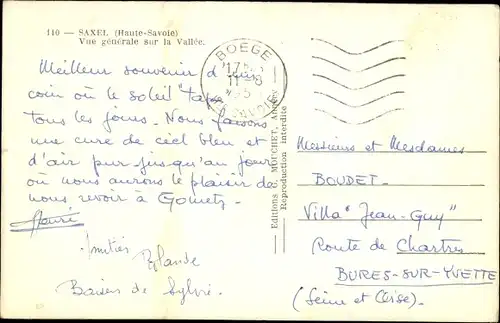 110 — SAXEL (Haute-Savoie)
Vue générale sur la Vallée.
BOEGE
Meilleur souvenir d'un
coin où le soleil "tape"
tous les jours. Nous faisons
une cure de ciel bleu et
d'air pur jusqu'au jour
où nous aurons le plaisir de
nous revoir à Gometz.
Amitiés
Rolande
Baisers de Sylvie.
Editions G. MOUCHET, Annecy
Reproduction interdite
Messieurs et Mesdames
BOUDET
Villa "Jean-Guy"
Route de Chartres
BURES-SUR-YVETTE
(Seine et Oise).